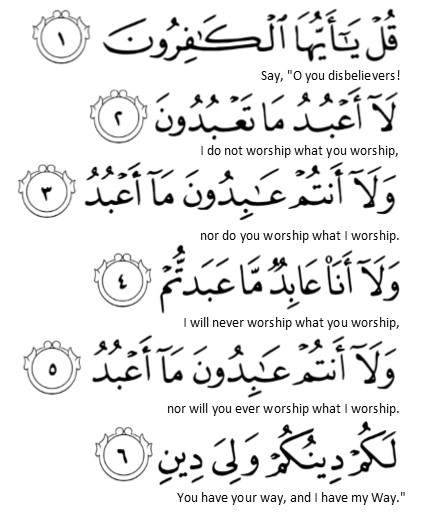 قُلْ يَـٰٓأَيُّهَا ٱلْكَـٰفِرُونَ ١
Say, "O you disbelievers!
لَآ أَعْبُدُ مَا تَعْبُدُونَ ٢
I do not worship what you worship,
وَلَآ أَنتُمْ عَـٰبِدُونَ مَآ أَعْبُدُ ٣
nor do you worship what I worship.
وَلَآ أَنَا۠ عَابِدٌ مَّا عَبَدتُّمْ ٤
I will never worship what you worship,
وَلَآ أَنتُمْ عَـٰبِدُونَ مَآ أَعْبُدُ ٥
nor will you ever worship what I worship.
لَكُمْ دِينُكُمْ وَلِىَ دِينِ ٦
You have your way, and I have my Way."